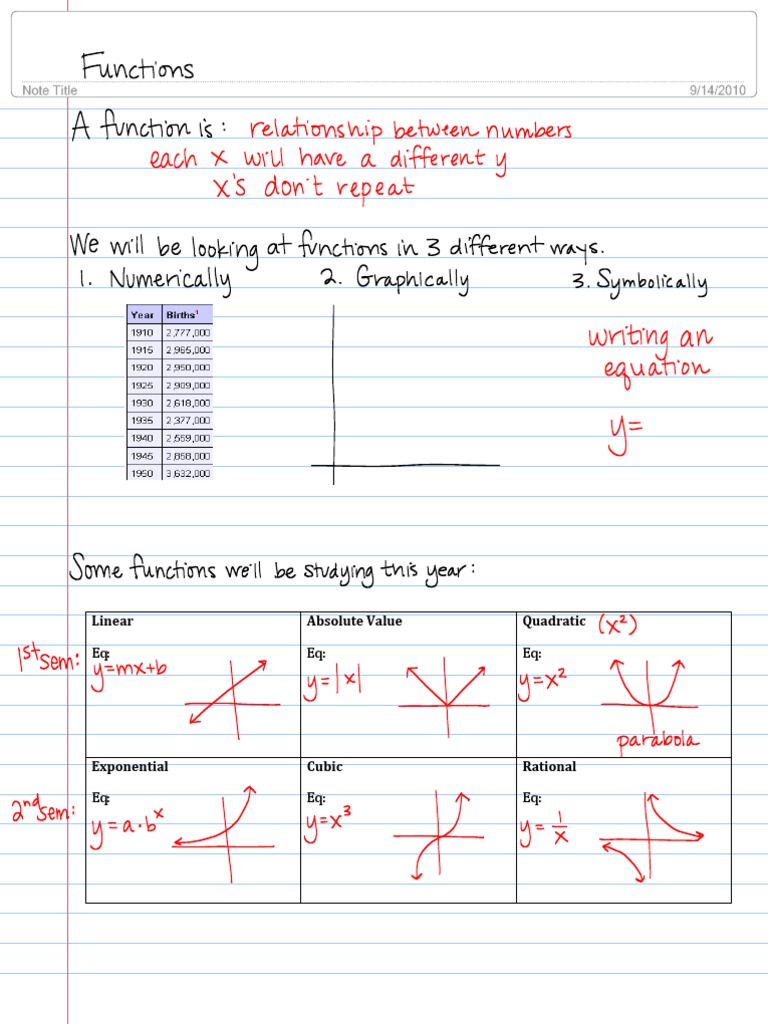 Functions
Note Title
9/14/2010
A function is: relationship between numbers
each x will have a different y
x's don't repeat
We will be looking at functions in 3 different ways.
1. Numerically 2. Graphically 3. Symbolically
Year Births¹
1910 2,777,000
1915 2,965,000
1920 2,950,000
1925 2,909,000
1930 2,618,000
1935 2,377,000
1940 2,559,000
1945 2,858,000
1950 3,632,000
writing an
equation
y=
Some functions we'll be studying this year:
1st sem:
Linear
Eq:
y=mx+b
Absolute Value
Eq:
y=|x|
Quadratic (x²)
Eq:
y=x²
parabola
2nd sem:
Exponential
Eq:
y=a·bˣ
Cubic
Eq:
y=x³
Rational
Eq:
y=1/x